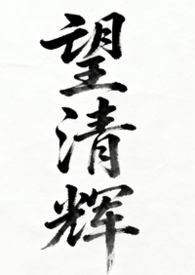 望清辉